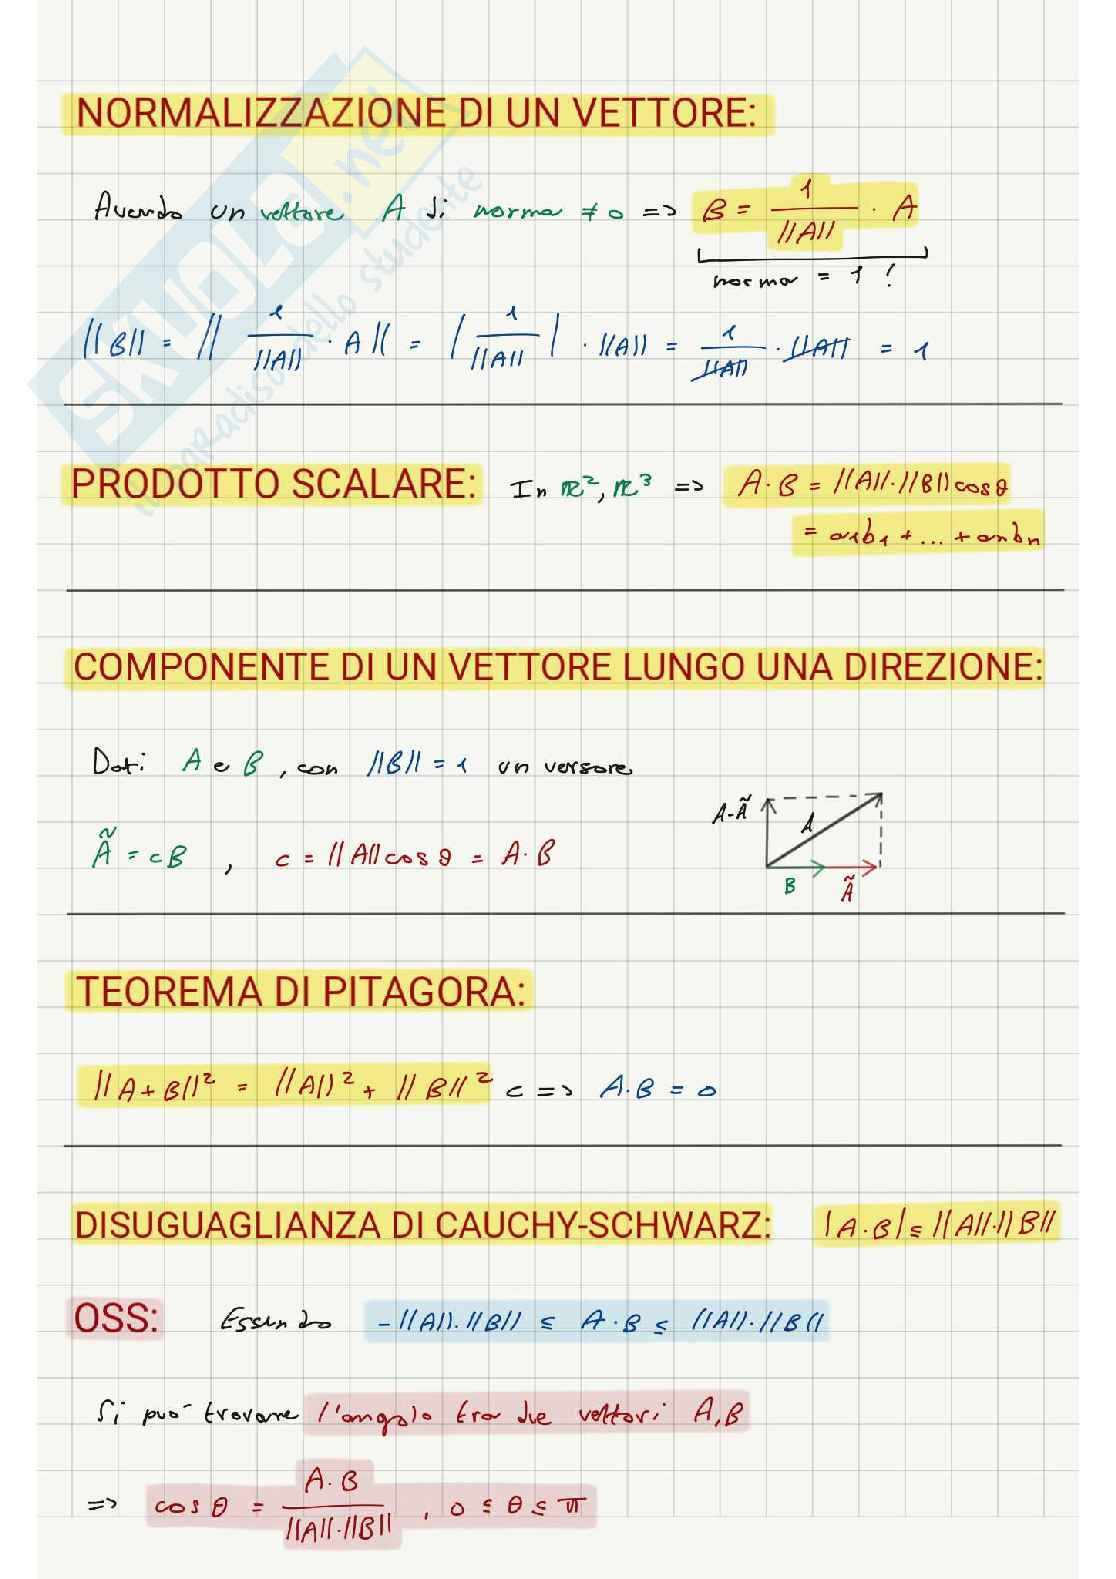 NORMALIZZAZIONE DI UN VETTORE:
Avendo un vettore A di norma ≠ 0 => B = 1/||A|| · A
norma = 1 !
||B|| = || 1/||A|| · A || = | 1/||A|| | · ||A|| = 1/||A|| · ||A|| = 1
PRODOTTO SCALARE: In ℝ², ℝ³ => A·B = ||A||·||B|| cos θ
= a1b1 + ... + anbn
COMPONENTE DI UN VETTORE LUNGO UNA DIREZIONE:
Dati A e B, con ||B|| = 1 un versore
A-Ã A
Ã = cB , c = ||A|| cos θ = A·B
B Ã
TEOREMA DI PITAGORA:
||A+B||² = ||A||² + ||B||² <=> A·B = 0
DISUGUAGLIANZA DI CAUCHY-SCHWARZ: |A·B| ≤ ||A||·||B||
OSS: Essendo -||A||·||B|| ≤ A·B ≤ ||A||·||B||
Si può trovare l'angolo tra due vettori A,B
=> cos θ = A·B/||A||·||B|| , 0 ≤ θ ≤ π
SKUOLA.net
il paradiso dello studente